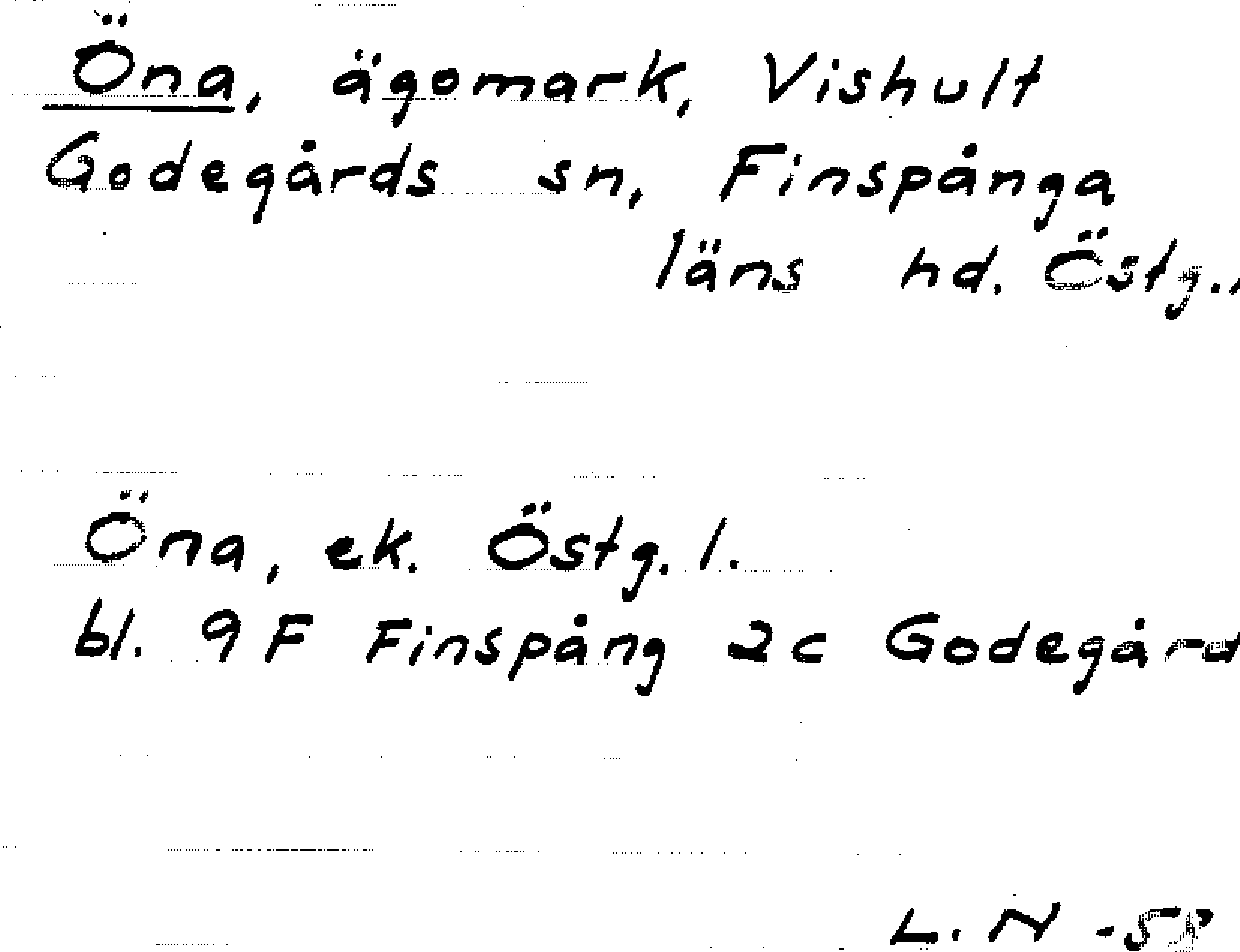 Öna, ägomark, Vishult
Godegårds sn, Finspånga
läns hd. Östg.
Öna, ek. Östg. l.
bl. 9F Finspång 2c Godegård
L. N